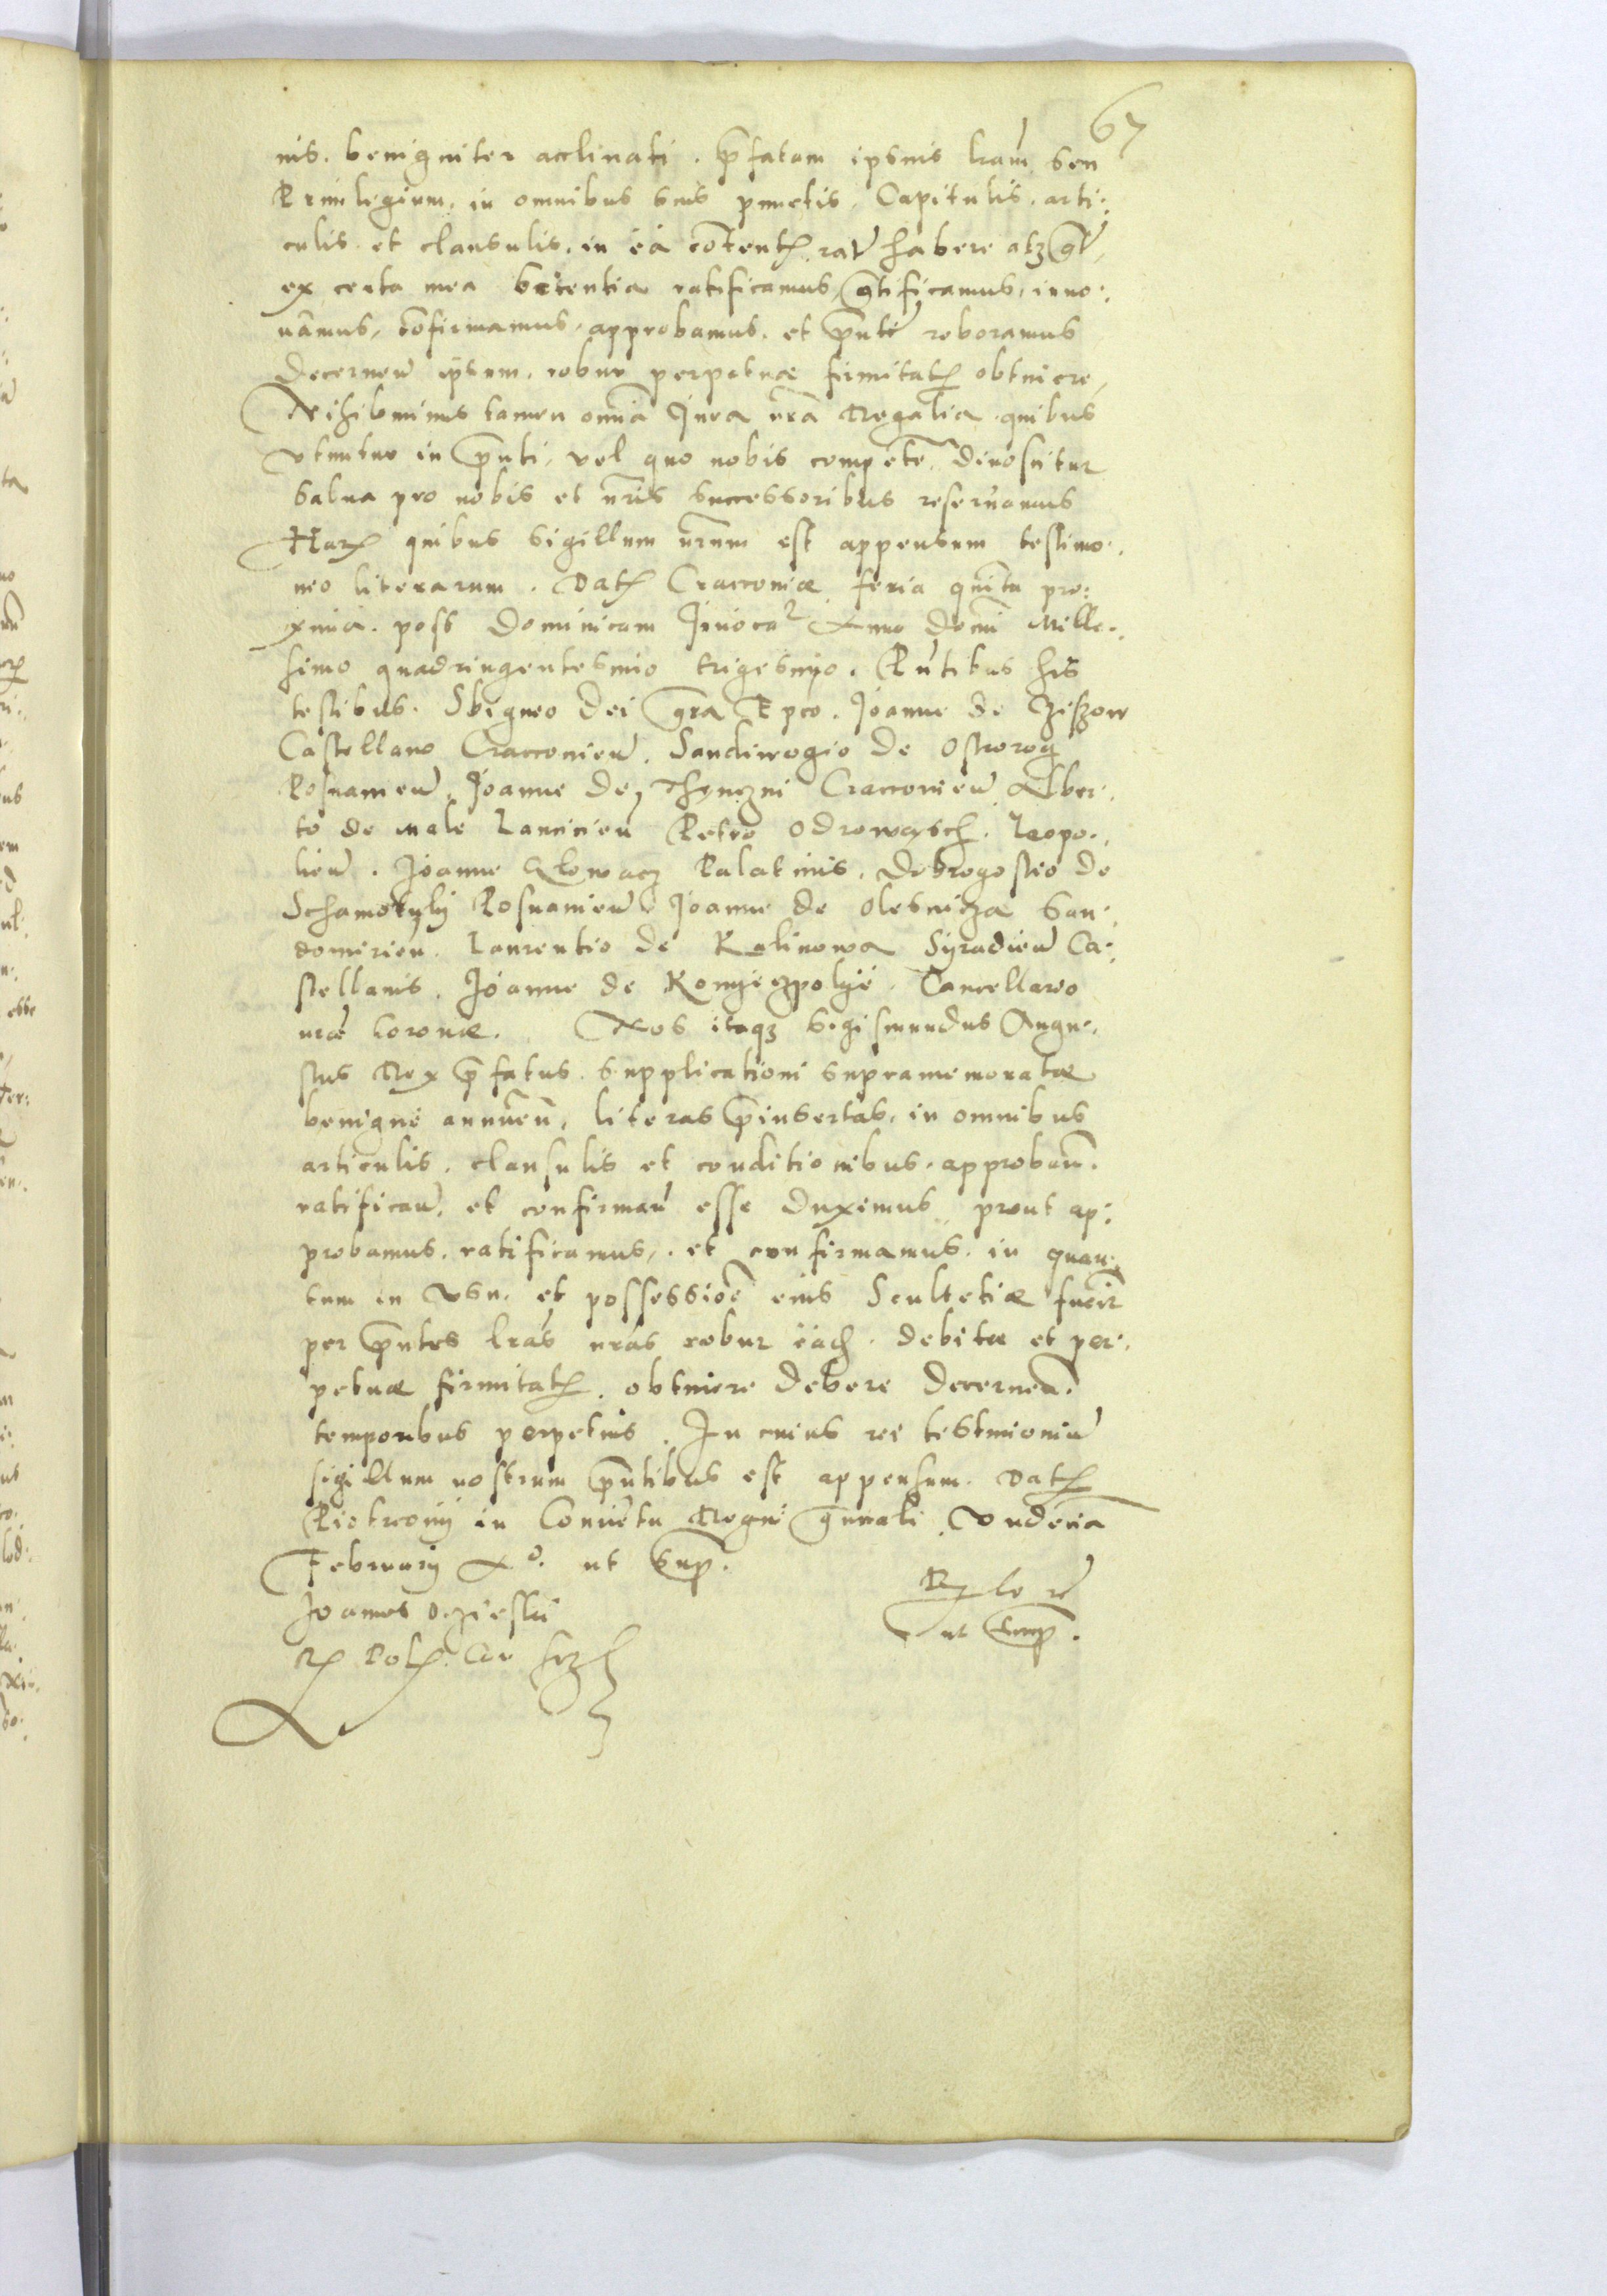 67
nis. benigniter acclinati. p̄fatam ipsius lr̄am seu
Priuilegium. in omnibus suis punctis, Capitulis. arti:
culis. et clausulis. in ea cōtent. rat habere atq gr̄t,
ex certa mea scientia ratificamus, gr̄tificamus, inno:
uamus, cōfirmamus, approbamus. et p̄nti reboramus
decernen̄ ip̄um. robur perpetuæ firmitat obtinere,
Nihilominus tamen omnia Jura nr̄a Regalia. quibus
vtimur in p̄nti, vel quo nobis competē. dinoscitur
salua pro nobis et nr̄is successoribus reseruamus
Har quibus sigillum nr̄um est appensum testimo:
nio literarum. Dat Cracouiæ feria quinta pro:
xima. post Dominicam Inuoca Anno Domini Mille:
simo quadringentesimo trigesimo. Pn̄tibus his
testibus. Sbigneo dei gr̄a Epco. Joanne de
Castellano Cracouien̄. Sandiwogio de Ostrorog
Posnanien̄. Joanne de Thynczni Cracouien̄ Alber:
to de Male Lancicien̄ Petro Odrowąsch. Leopo:
lien̄. Joanne Glowacz Palatinis. Dobrogostio de
Schamotuly Posnanien̄ Joanne de Olesnicza San:
domirien. Laurentio de Kalinowa Syradien̄ Ca:
stellanis. Joanne de Konyeczpolye. Cancellario
nr̄æ koronæ. Nos itaq Sigismundus Augu:
stus Rex p̄fatus. supplicationi supramemoratæ
benigne annuen̄, literas p̄insertas, in omnibus
articulis. clausulis et conditionibus. approban̄.
ratifican̄. et confirman̄ esse duximus prout ap:
probamus. ratificamus,. et confirmamus. in quan:
tum in vsu. et possessiōe eius Scultetiæ fuerit
per p̄ntes lr̄as nr̄as robur debitæ et per:
petuæ firmitat. obtinere debere decernen̄.
temporibus perpetuis. In cuius rei testimoniū
sigillum nostrum p̄ntibus est appensum. Dat
Piotrcouij in Conuētu Regni gn̄rali Vndecia
Februarij Aº. ut sup.
Joannes Oczieski
R Pol
ut sup.